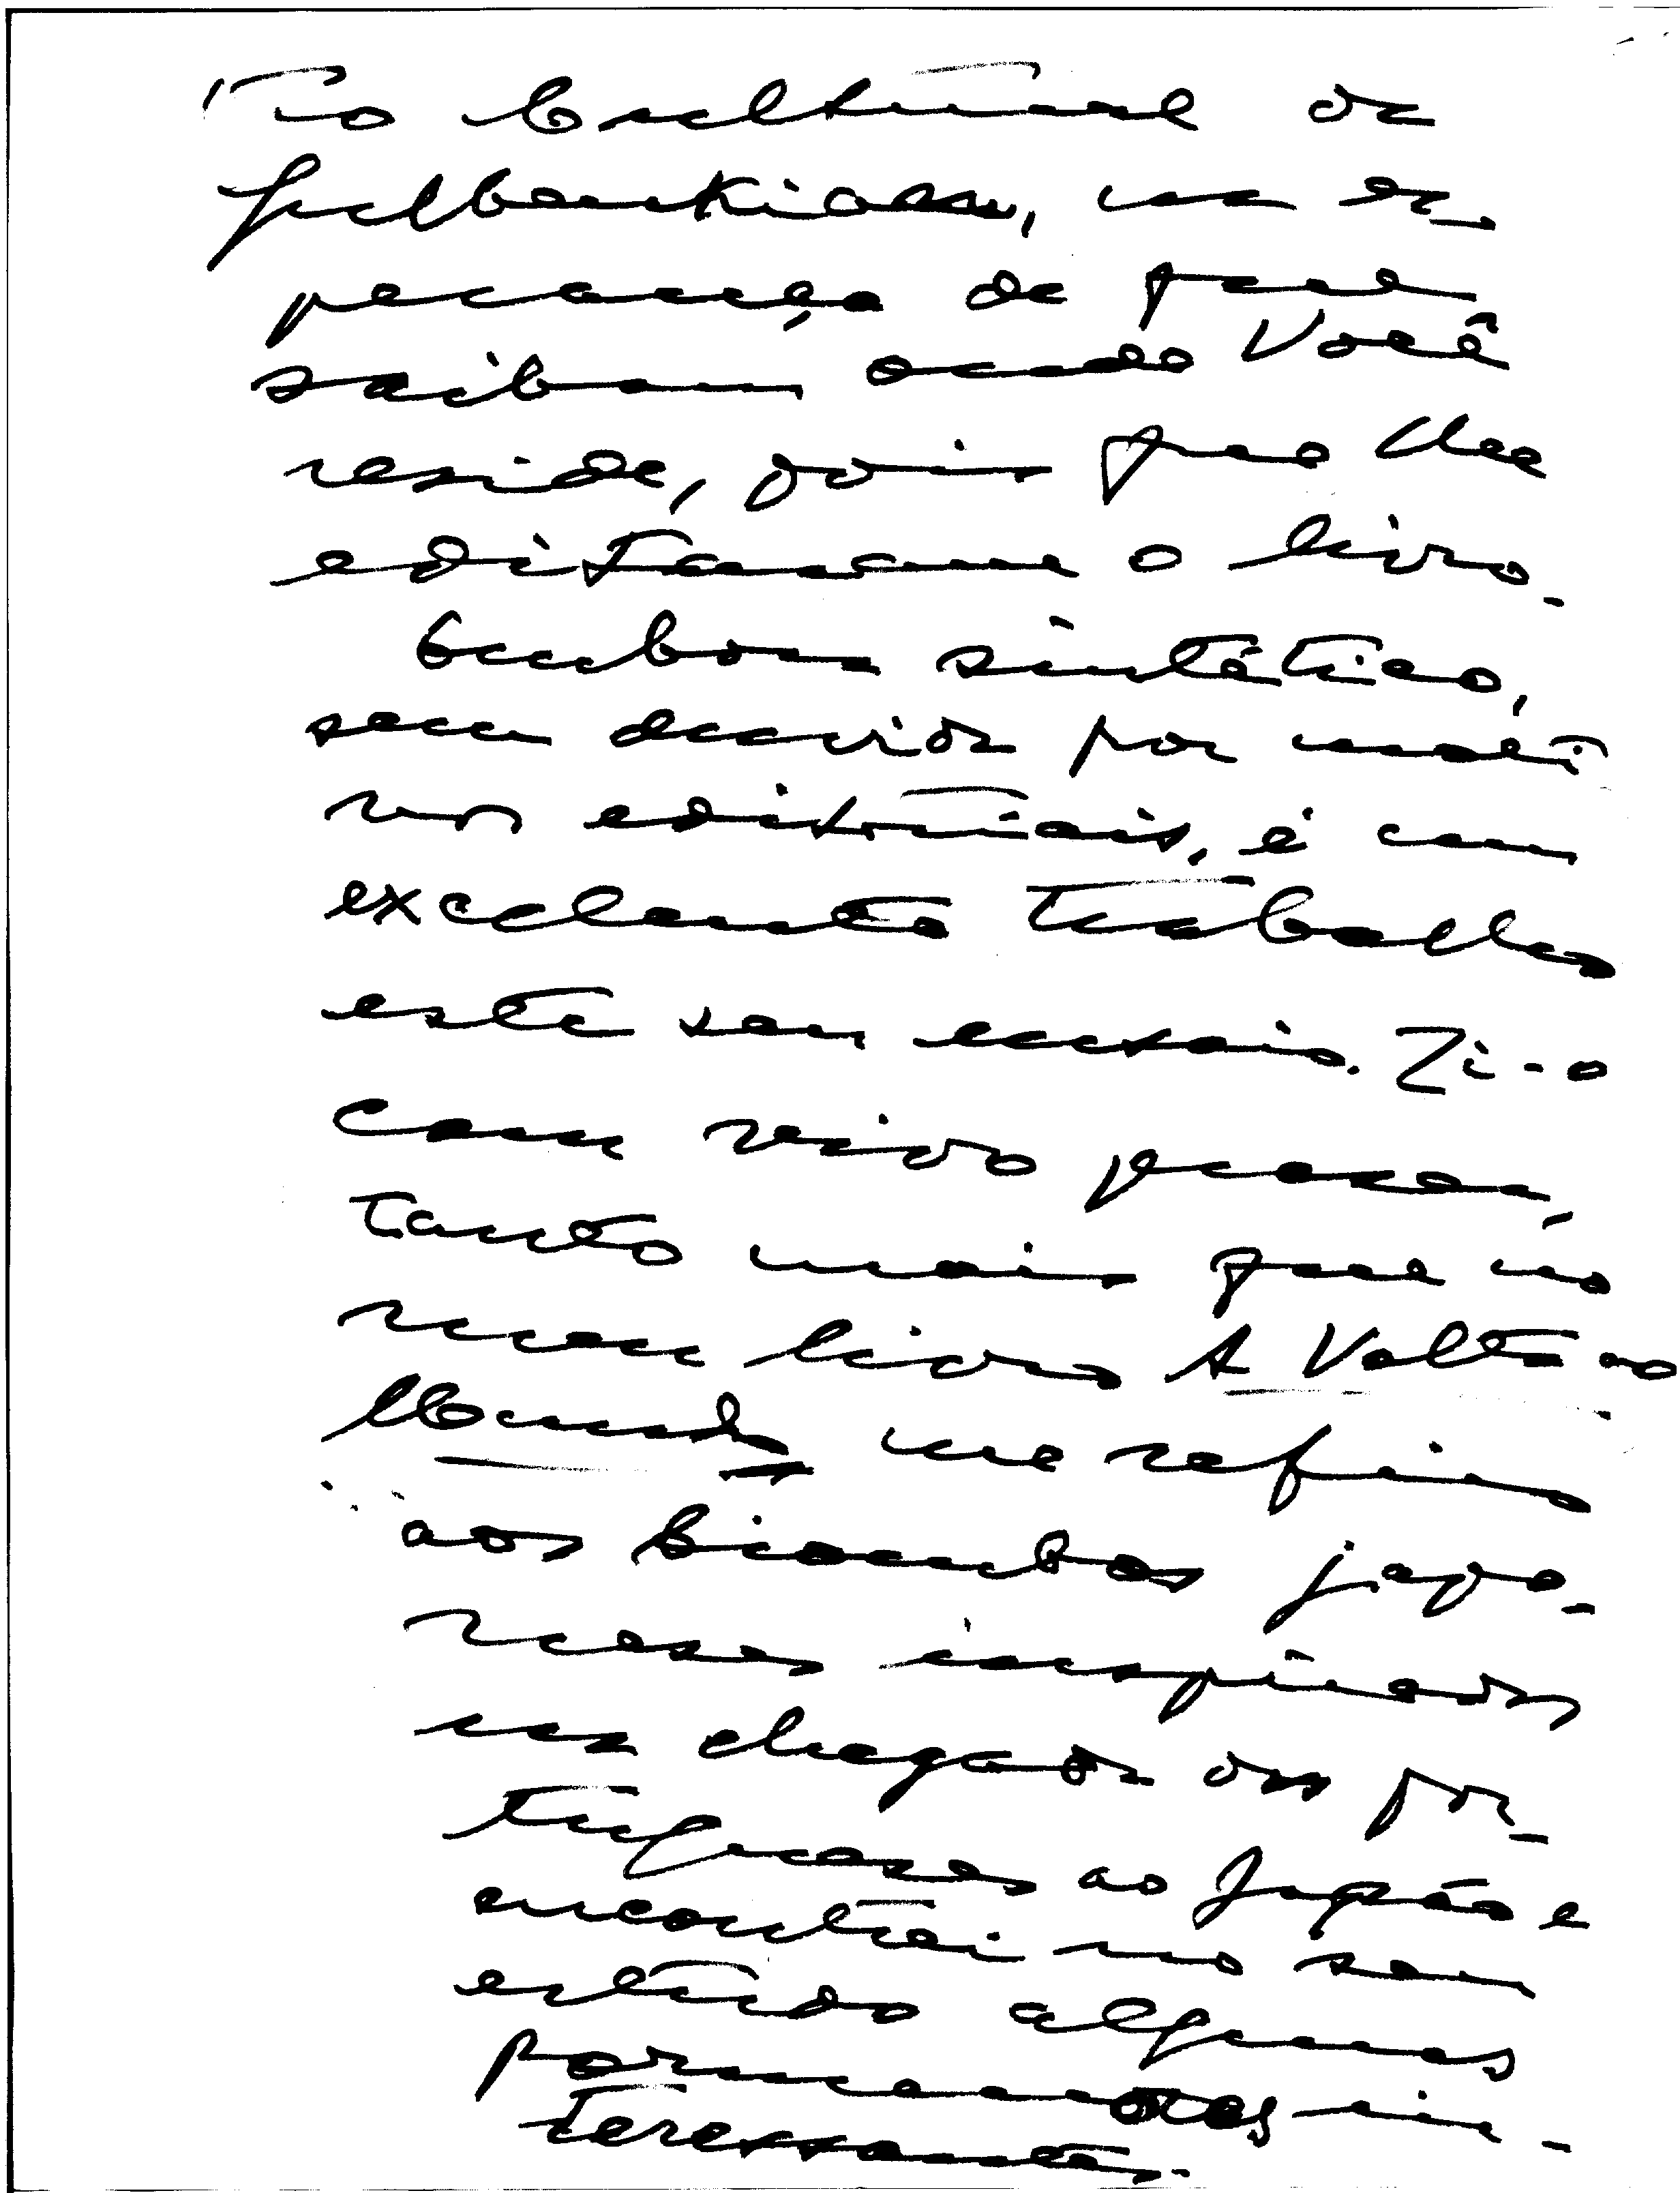 to Cultural da
Gulbenkian, na es-
perança de que
saibam onde Você
reside, pois que lhe
editaram o livro.
Embora sintético,
sem dúvida por moti-
vos editoriais, é um
excelente trabalho
este seu ensaio. Li-o
com vivo prazer,
tanto mais que no
meu livro A Volta ao
Mundo, me refiro
aos biombos japo-
neses inspirados
na chegada dos por-
tugueses ao Japão e
encontrei no seu
estudo alguns
pormenores in-
teressantes.